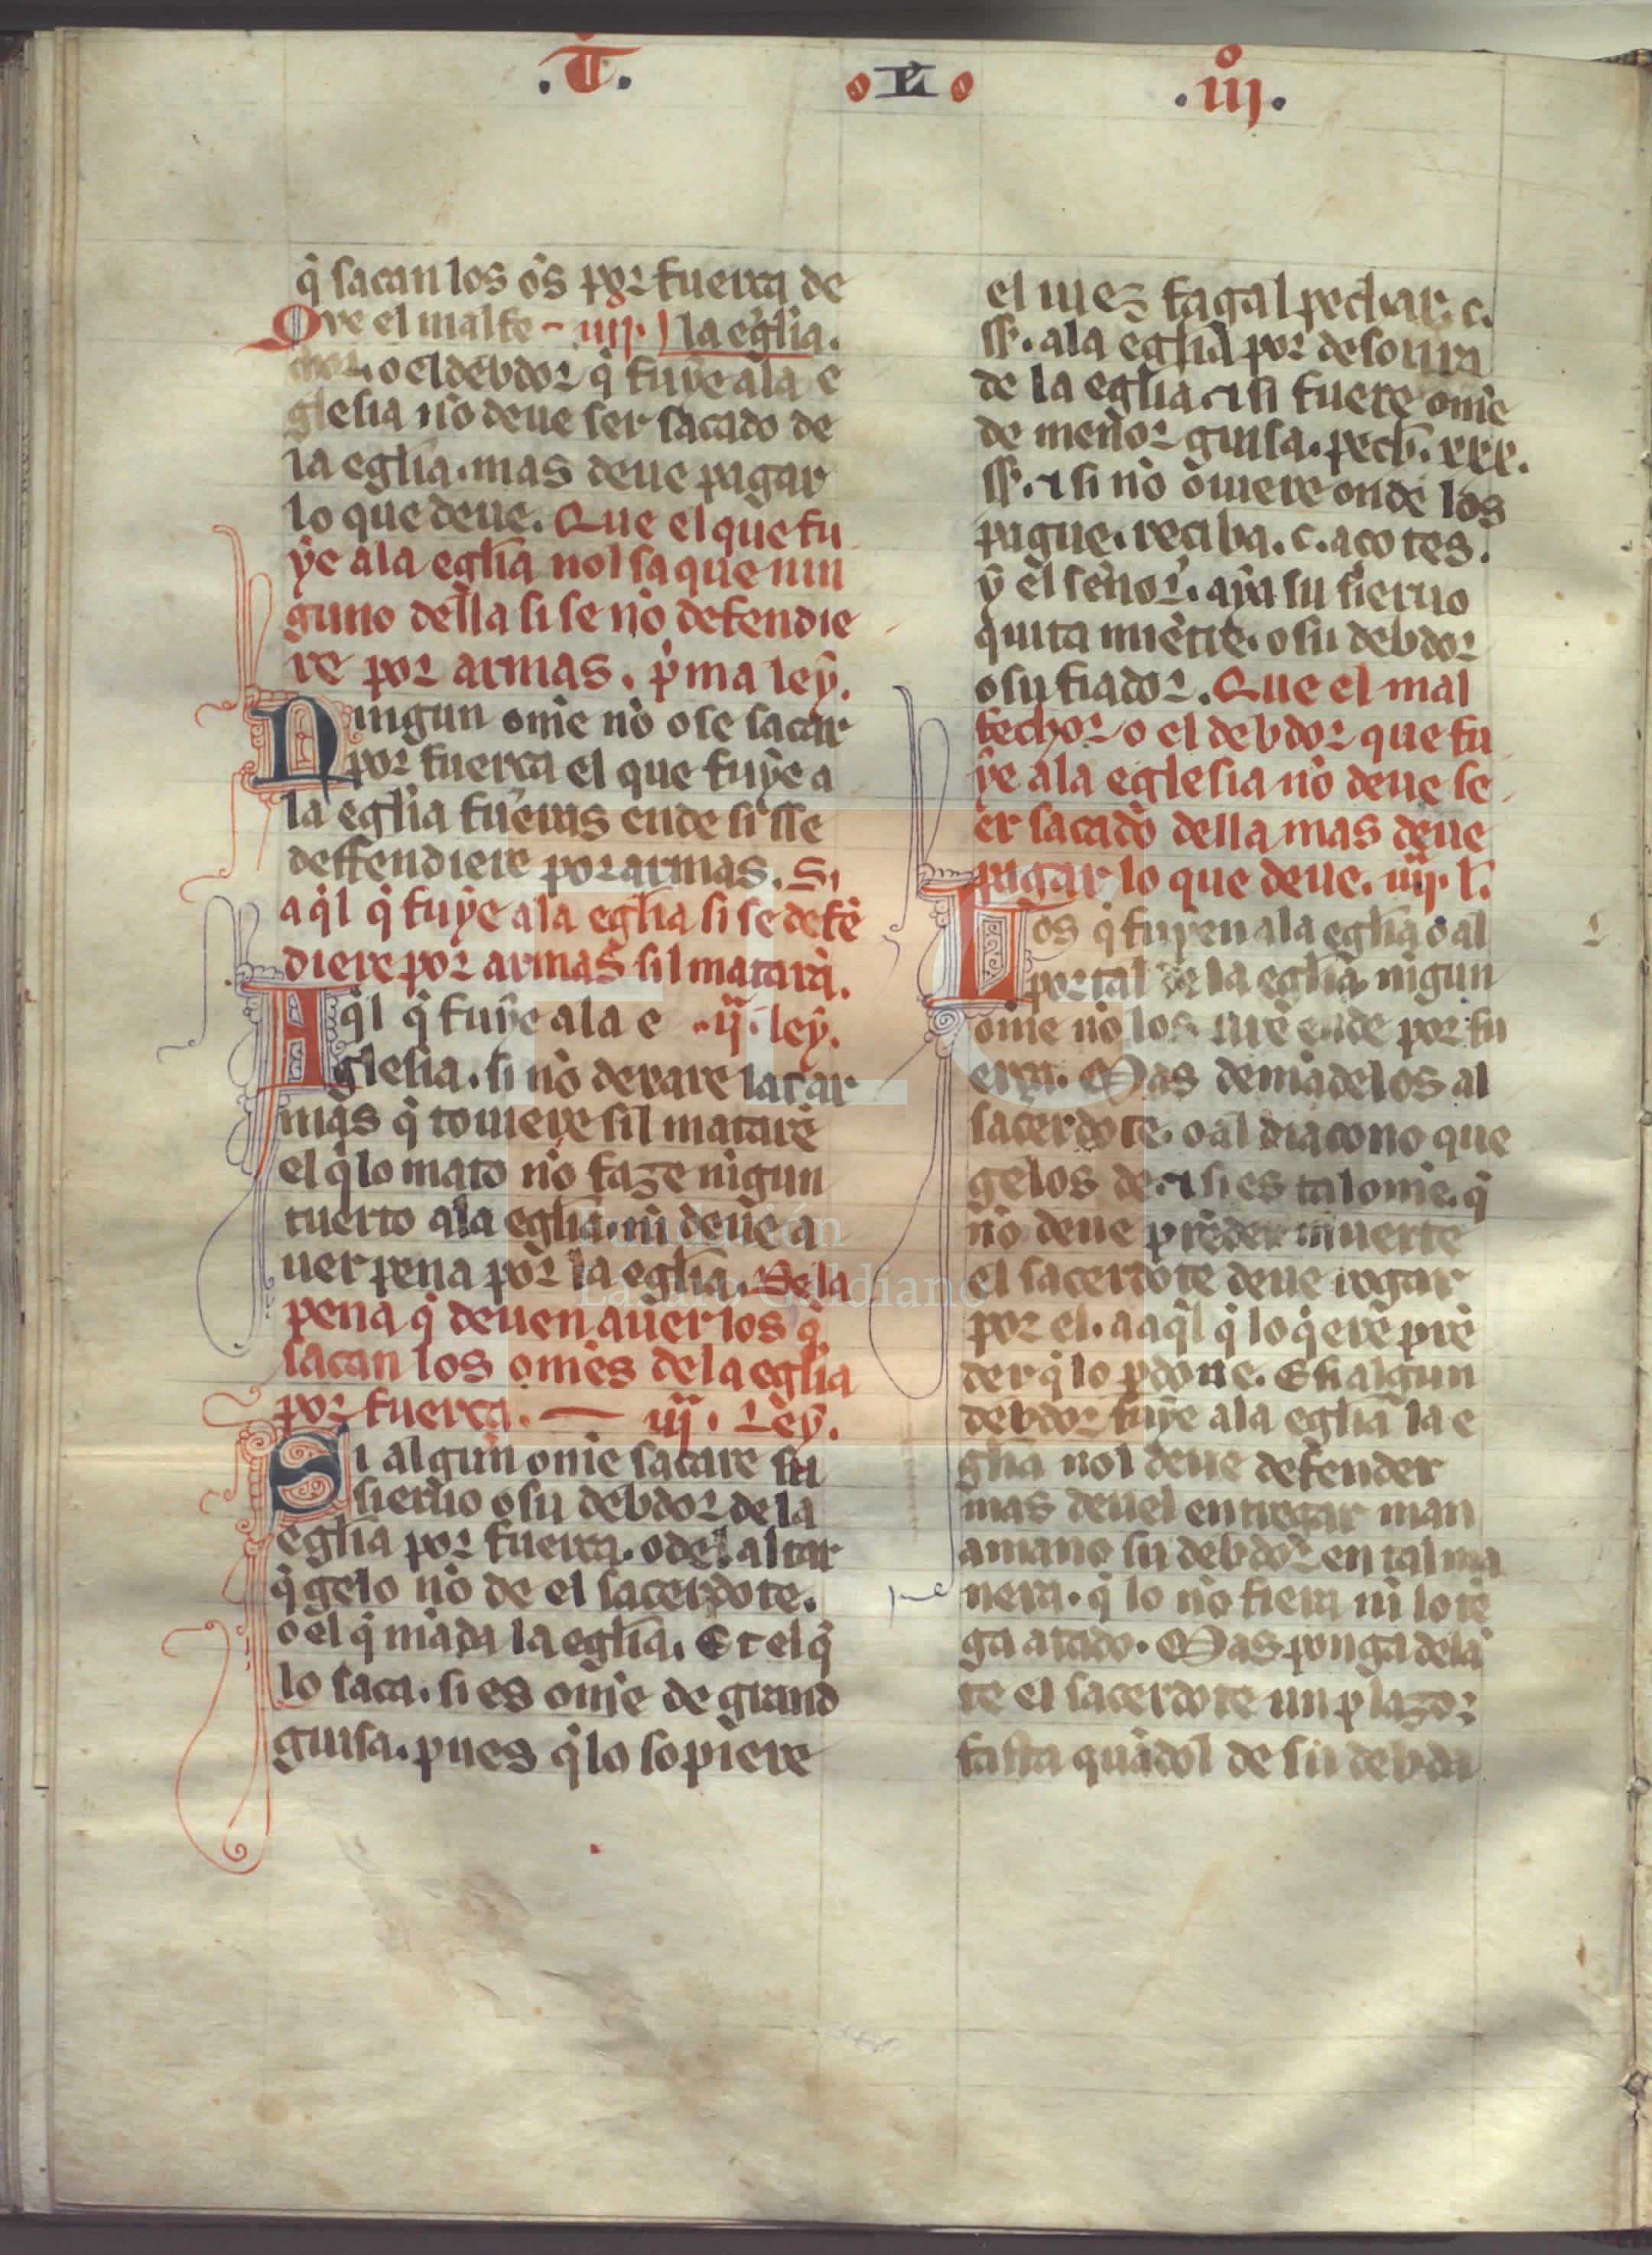 .T. .L. .iij.
q̃ sacan los os̃ por fuerça de
Q̃ve el malfe - .iiij. la egl̃ia.
chor. o el debdor q̃ fuye ala e
glesia nõ deue ser sacado de
la egl̃ia. mas deue pagar
lo que deue. Que el que fu
ye ala egl̃ia nol saque nin
guno della si se nõ defendie
re por armas. p̃ma ley.
Ningun om̃e nõ ose sacar
por fuerça el que fuye a
la egl̃ia fueras ende si sse
deffendiere por armas. Si
aq̃l q̃ fuye ala egl̃ia si se defẽ
diere por armas sil matarã.
Aq̃l q̃ fuye ala e .ij. ley.
glesia. si nõ dexare las ar
mas q̃ touiere sil matarẽ
el q̃ lo mato nõ faze nĩgun
tuerto ala egl̃ia. nĩ deue a
uer pena por la egl̃ia. De la
pena q̃ deuen auer los q̃
sacan los om̃es dela egl̃ia
por fuerça. — iij. Ley.
Si algun om̃e sacare su
sieruo o su debdor de la
egl̃ia por fuerça. o del altar
q̃ gelo nõ de el sacerdote.
o el q̃ mãda la egl̃ia. Et el q̃
lo saca. si es om̃e de grand
guisa. pues q̃ lo sopiere
el iuez fagal pechar. c.
ss̃. ala egl̃ia por desonra
de la egl̃ia. ⁊ si fuere om̃e
de menor guisa. pech̃. xxx.
ss̃. ⁊ si nõ ouiere onde los
pague. reciba. c. açotes.
y el señor. aya su sieruo
quita miẽtre. o su debdor
o su fiador. Que el mal
fechor o el debdor que fu
ye ala eglesia nõ deue se
er sacado della mas deue
pagar lo que deue. iiij. l̃.
Los q̃ fuyen ala egl̃ia o al
portal de la egl̃ia nĩgun
om̃e nõ los tire ende por fu
erça. Mas demãdelos al
sacerdote. o al diacono que
gelos de. ⁊ si es tal om̃e. q̃
nõ deue prẽder muerte
el sacerdote deue rogar
por el. a aq̃l q̃ lo q̃ere prẽ
der q̃ lo p̃done. E si algun
debdor fuye ala egl̃ia la e
gl̃ia nol deue defender
mas deuel entregar man
amano su debdor en tal ma
nera. q̃ lo nõ fiera nĩ lo tẽ
ga atado. Mas ponga delã
te el sacerdote un plazo:
fasta quãdol de su debda